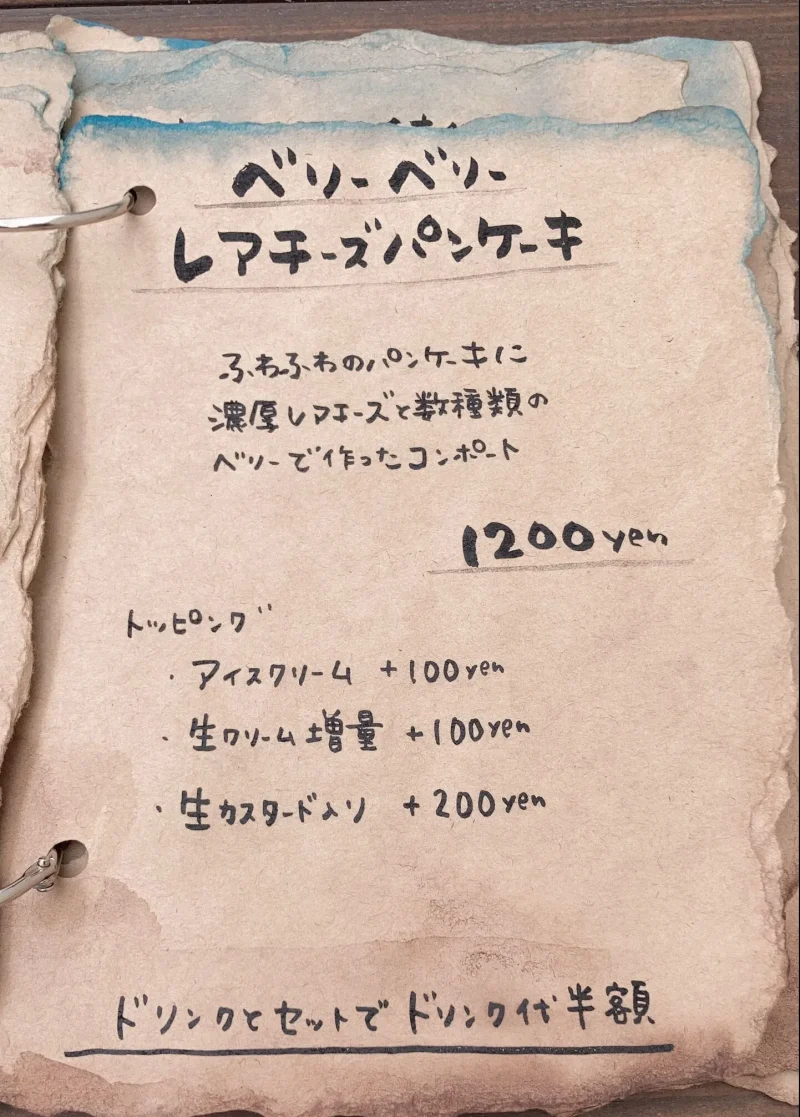 ベリーベリー
レアチーズパンケーキ
ふわふわのパンケーキに
濃厚レアチーズと数種類の
ベリーで作ったコンポート
1200yen
トッピング
・アイスクリーム +100yen
・生クリーム増量 +100yen
・生カスタード入り +200yen
ドリンクとセットでドリンク代半額